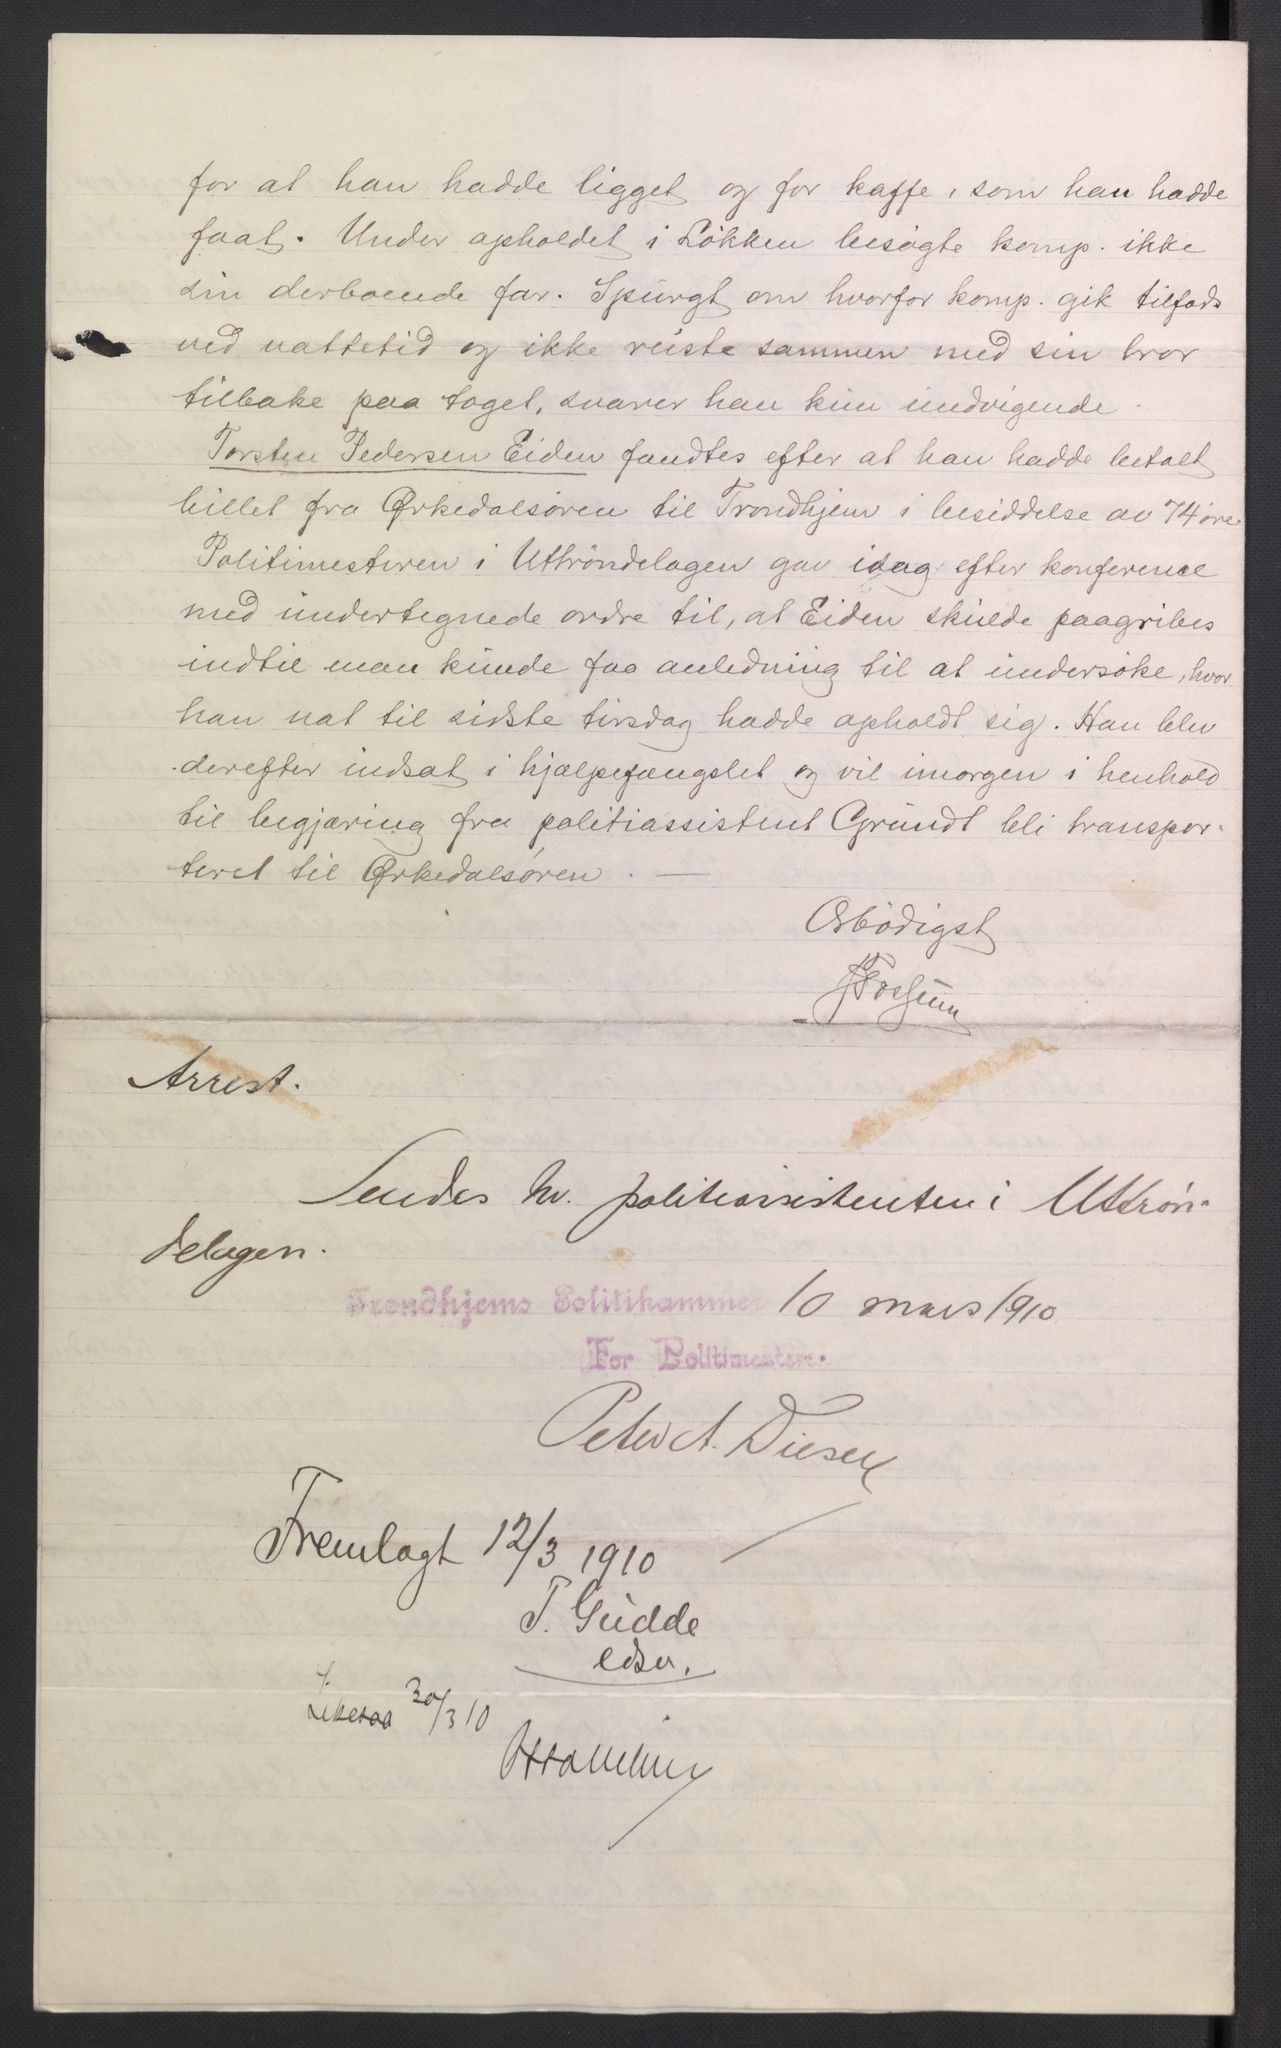 for at han hadde ligget og for kaffe, som han hadde
faat. Under opholdet i Løkken besøgte komp. ikke
sin derboende far. Spurgt om hvorfor komp. gik tilfods
ved nattetid og ikke reiste sammen med sin bror
tilbake paa toget, svarer han kun undvigende.
Torsten Pedersen Eiden fandtes efter at han hadde betalt
billet fra Ørkedalsøren til Trondhjem i besiddelse av 74 øre
Politimesteren i Uttröndelagen gav idag efter konference
med undertegnede ordre til, at Eiden skulde paagribes
indtil man kunde faa anledning til at undersøke, hvor
han nat til sidste tirsdag hadde opholdt sig. Han blev
derefter indsat i hjælpefængslet og vil imorgen i henhold
til begjæring fra politiassistent Grundt bli transpor-
teret til Ørkedalsøren. —
Ærbödigst
Fossum
Arrest.
Sendes hr. politiassistenten i Uttrøn-
delagen.
Trondhjems Politikammer 10 mars 1910
For Politimesteren:
Peter A. Diesen
Fremlagt 12/3 1910
T. Gudde
edsv.
Likesaa 30/3 10